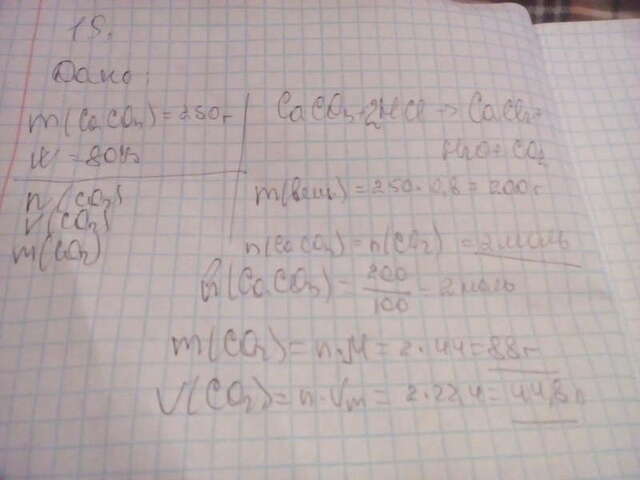 15.
Дано:
m(CaCO3) = 250г
W = 80%
n(CO2)
V(CO2)
m(CO2)
CaCO3 + 2HCl → CaCl2 +
H2O + CO2
m(вещ) = 250 · 0,8 = 200г
n(CaCO3) = n(CO2) = 2 моль
n(CaCO3) = 200/100 = 2 моль
m(CO2) = n · M = 2 · 44 = 88г
V(CO2) = n · Vm = 2 · 22,4 = 44,8 л